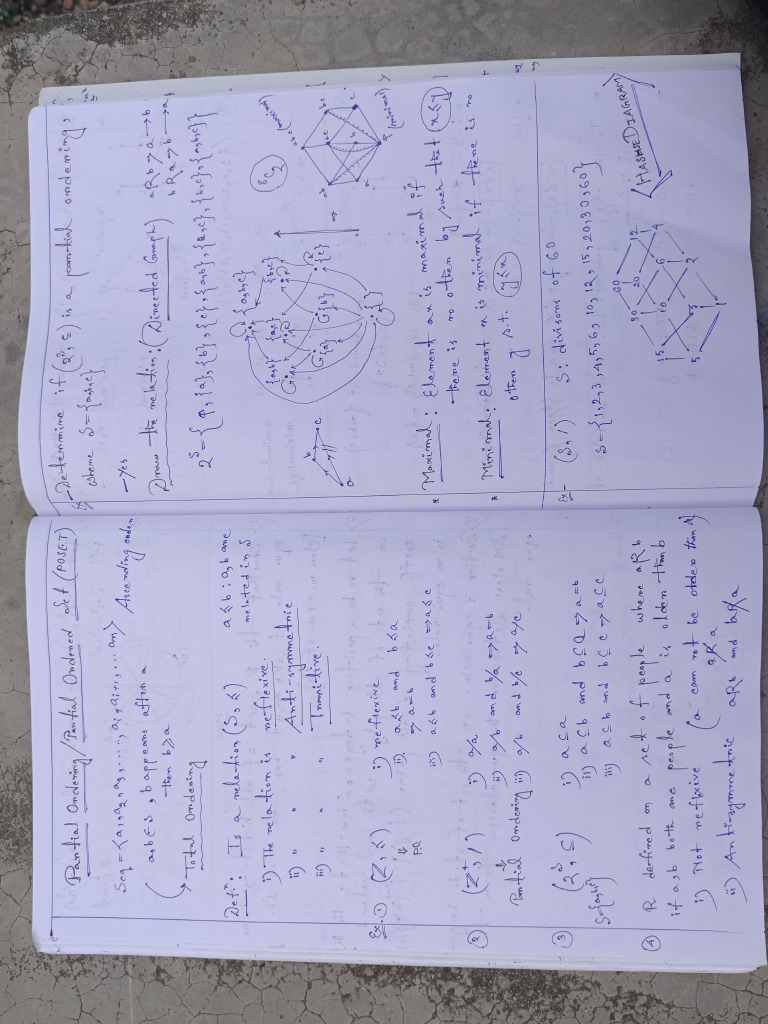 Partial Ordering/Partial Ordered Set (POSET)
Seq = <a1, a2, a3, ...., ai, ai+1, ... an> Ascending order
a, b ∈ S, b appears after a
then b ≥ a
→ Total Ordering
Defn: Is a relation (S, ≼) a ≼ b : a, b are
related in S
i) The relation is reflexive.
ii) " " " Anti-symmetric
iii) " " " Transitive.
Ex. ① (Z, ≤) i) reflexive
⇓ ii) a≤b and b≤a
P.O ⇒ a=b
iii) a≤b and b≤c ⇒ a≤c
② (Z+, /) i) a/a
⇓ ii) a/b and b/a ⇒ a=b
Partial Ordering iii) a/b and b/c ⇒ a/c
③ (2^S, ⊆) i) a ⊆ a
S={a,b,c} ii) a ⊆ b and b ⊆ a ⇒ a=b
iii) a ⊆ b and b ⊆ c ⇒ a ⊆ c
④ R defined on a set of people where aRb
if a, b both are people and a is older than b
i) Not reflexive (a can not be older than a)
a R̸ a
ii) Anti-symmetric aRb and bR̸a
Ex- Determine if (2^S, ⊆) is a partial ordering,
where S = {a,b,c}
- Yes
Draw the relation: (Directed Graph) aRb → a → b
bRa → b → a
2^S = {φ, {a}, {b}, {c}, {a,b}, {a,c}, {b,c}, {a,b,c}}
a b c
{a,b,c}
{a,b} {a,c} {b,c}
{a} {b} {c}
{ }
8C2
abc (maximal)
ab ac bc
a b c
φ (minimal)
* Maximal: Element x is maximal if
there is no other y such that x ≤ y
* Minimal: Element x is minimal if there is no
other y s.t. y ≤ x
Ex- (S, /) S: divisors of 60
S = {1, 2, 3, 4, 5, 6, 10, 12, 15, 20, 30, 60}
60
30 20 12
15 10 6 4
5 3 2
1
(HASSE DIAGRAM)